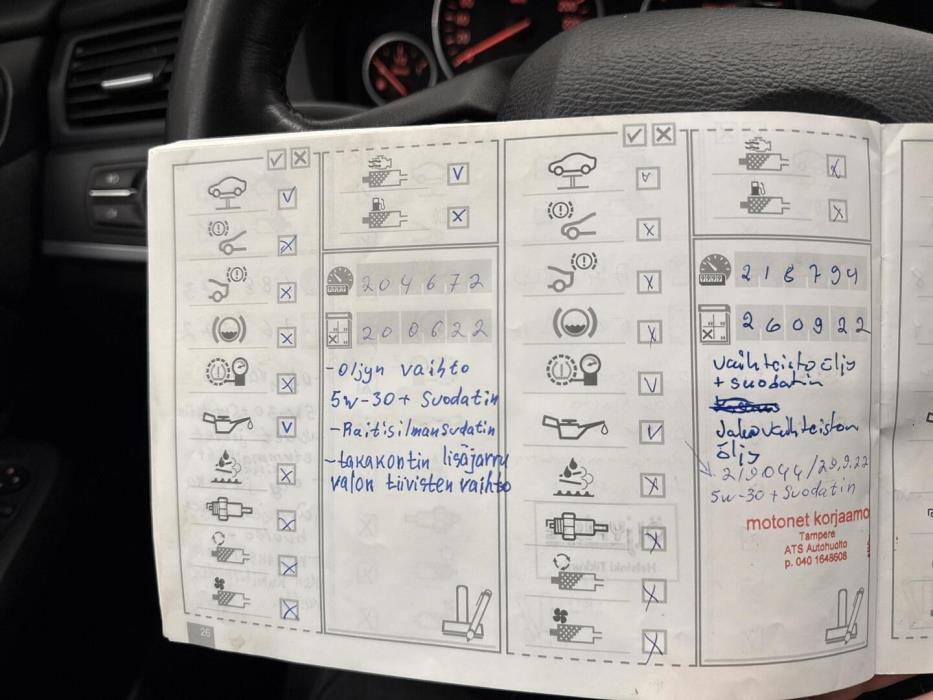 204672
200622
-Oljyn vaihto
5w-30+ Suodatin
-Raitisilmansudatin
-takakontin lisäjarru
valon tiivisten vaihto
26
218794
260922
vaihteisto öljy
+ suodatin
Jakovaihteiston
öljy
219044/29.9.22
5w-30 + Suodatin
motonet korjaamo
Tampere
ATS Autohuolto
p. 040 1648608